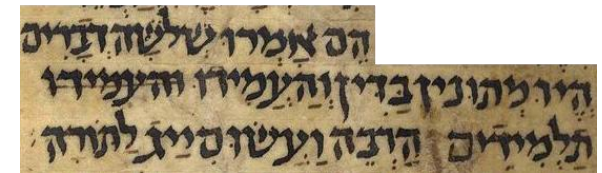 הם אמרו שלשה דברים
היו מתונין בדין והעמידו והעמידו
תלמידים הרבה ועשו סייג לתורה